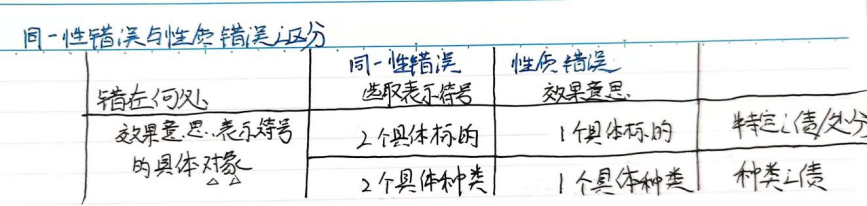 同一性错误与性质错误之区分
同一性错误 性质错误
错在何处 选取表示符号 效果意思
效果意思、表示符号 2个具体标的 1个具体标的 特定之债/处分
的具体对象 2个具体种类 1个具体种类 种类之债